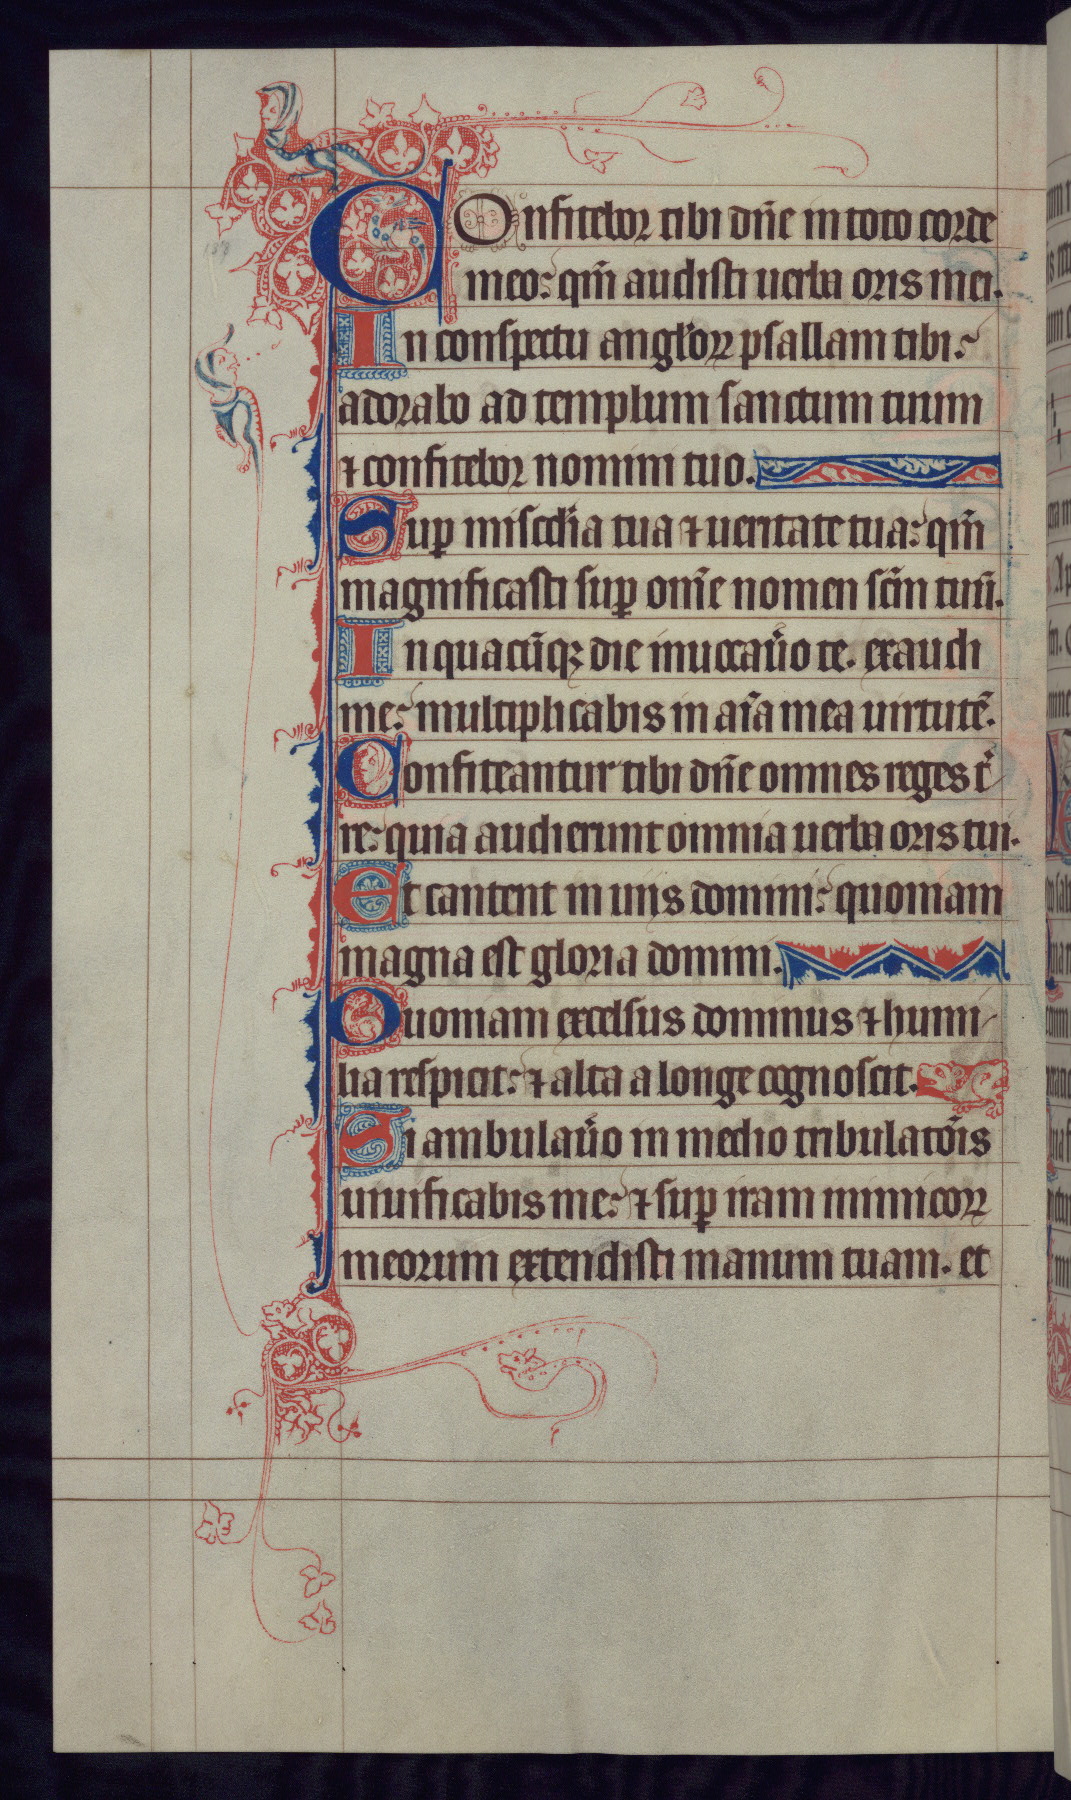 COnfitebor tibi dn̄e in toto corde
meo: qm̄ audisti uerba oris mei.
In conspectu angłorꝝ psallam tibi:
adorabo ad templum sanctum tuum
⁊ confitebor nomini tuo.
Suꝑ misc̄dia tua ⁊ ueritate tua: qm̄
magnificasti suꝑ om̄e nomen sc̄m tuū.
In quacūqꝫ die inuocau̓o te. exaudi
me: multiplicabis in aīa mea uirtutē.
Confiteantur tibi dn̄e omnes reges t̓
re: quia audierunt omnia uerba oris tui.
Et cantent in uiis domini: quoniam
magna est gloria domini.
Quoniam excelsus dominus ⁊ humi
lia respicit: ⁊ alta a longe cognoscit.
Si ambulau̓o in medio tribulatōis
uiuificabis me: ⁊ suꝑ iram inimicoꝝ
meorum extendisti manum tuam. et